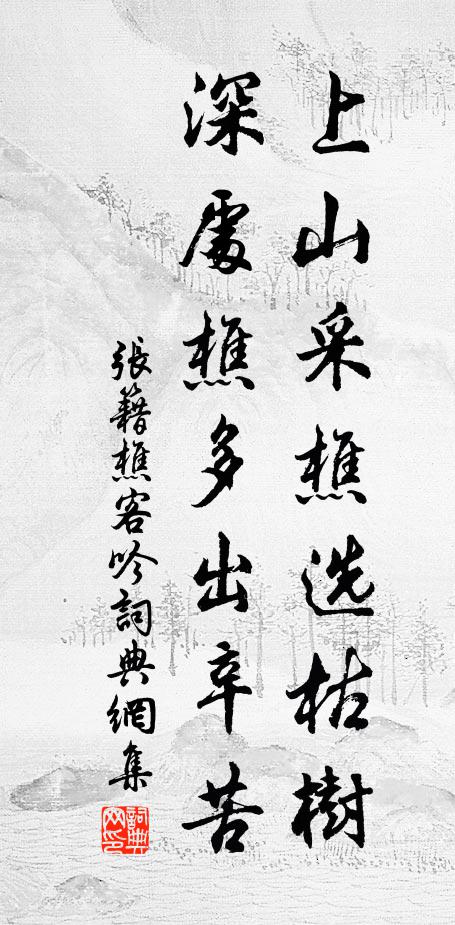 上山采樵选枯樹
深處樵多出辛苦
張籍樵客吟詞典網集
詞典网印